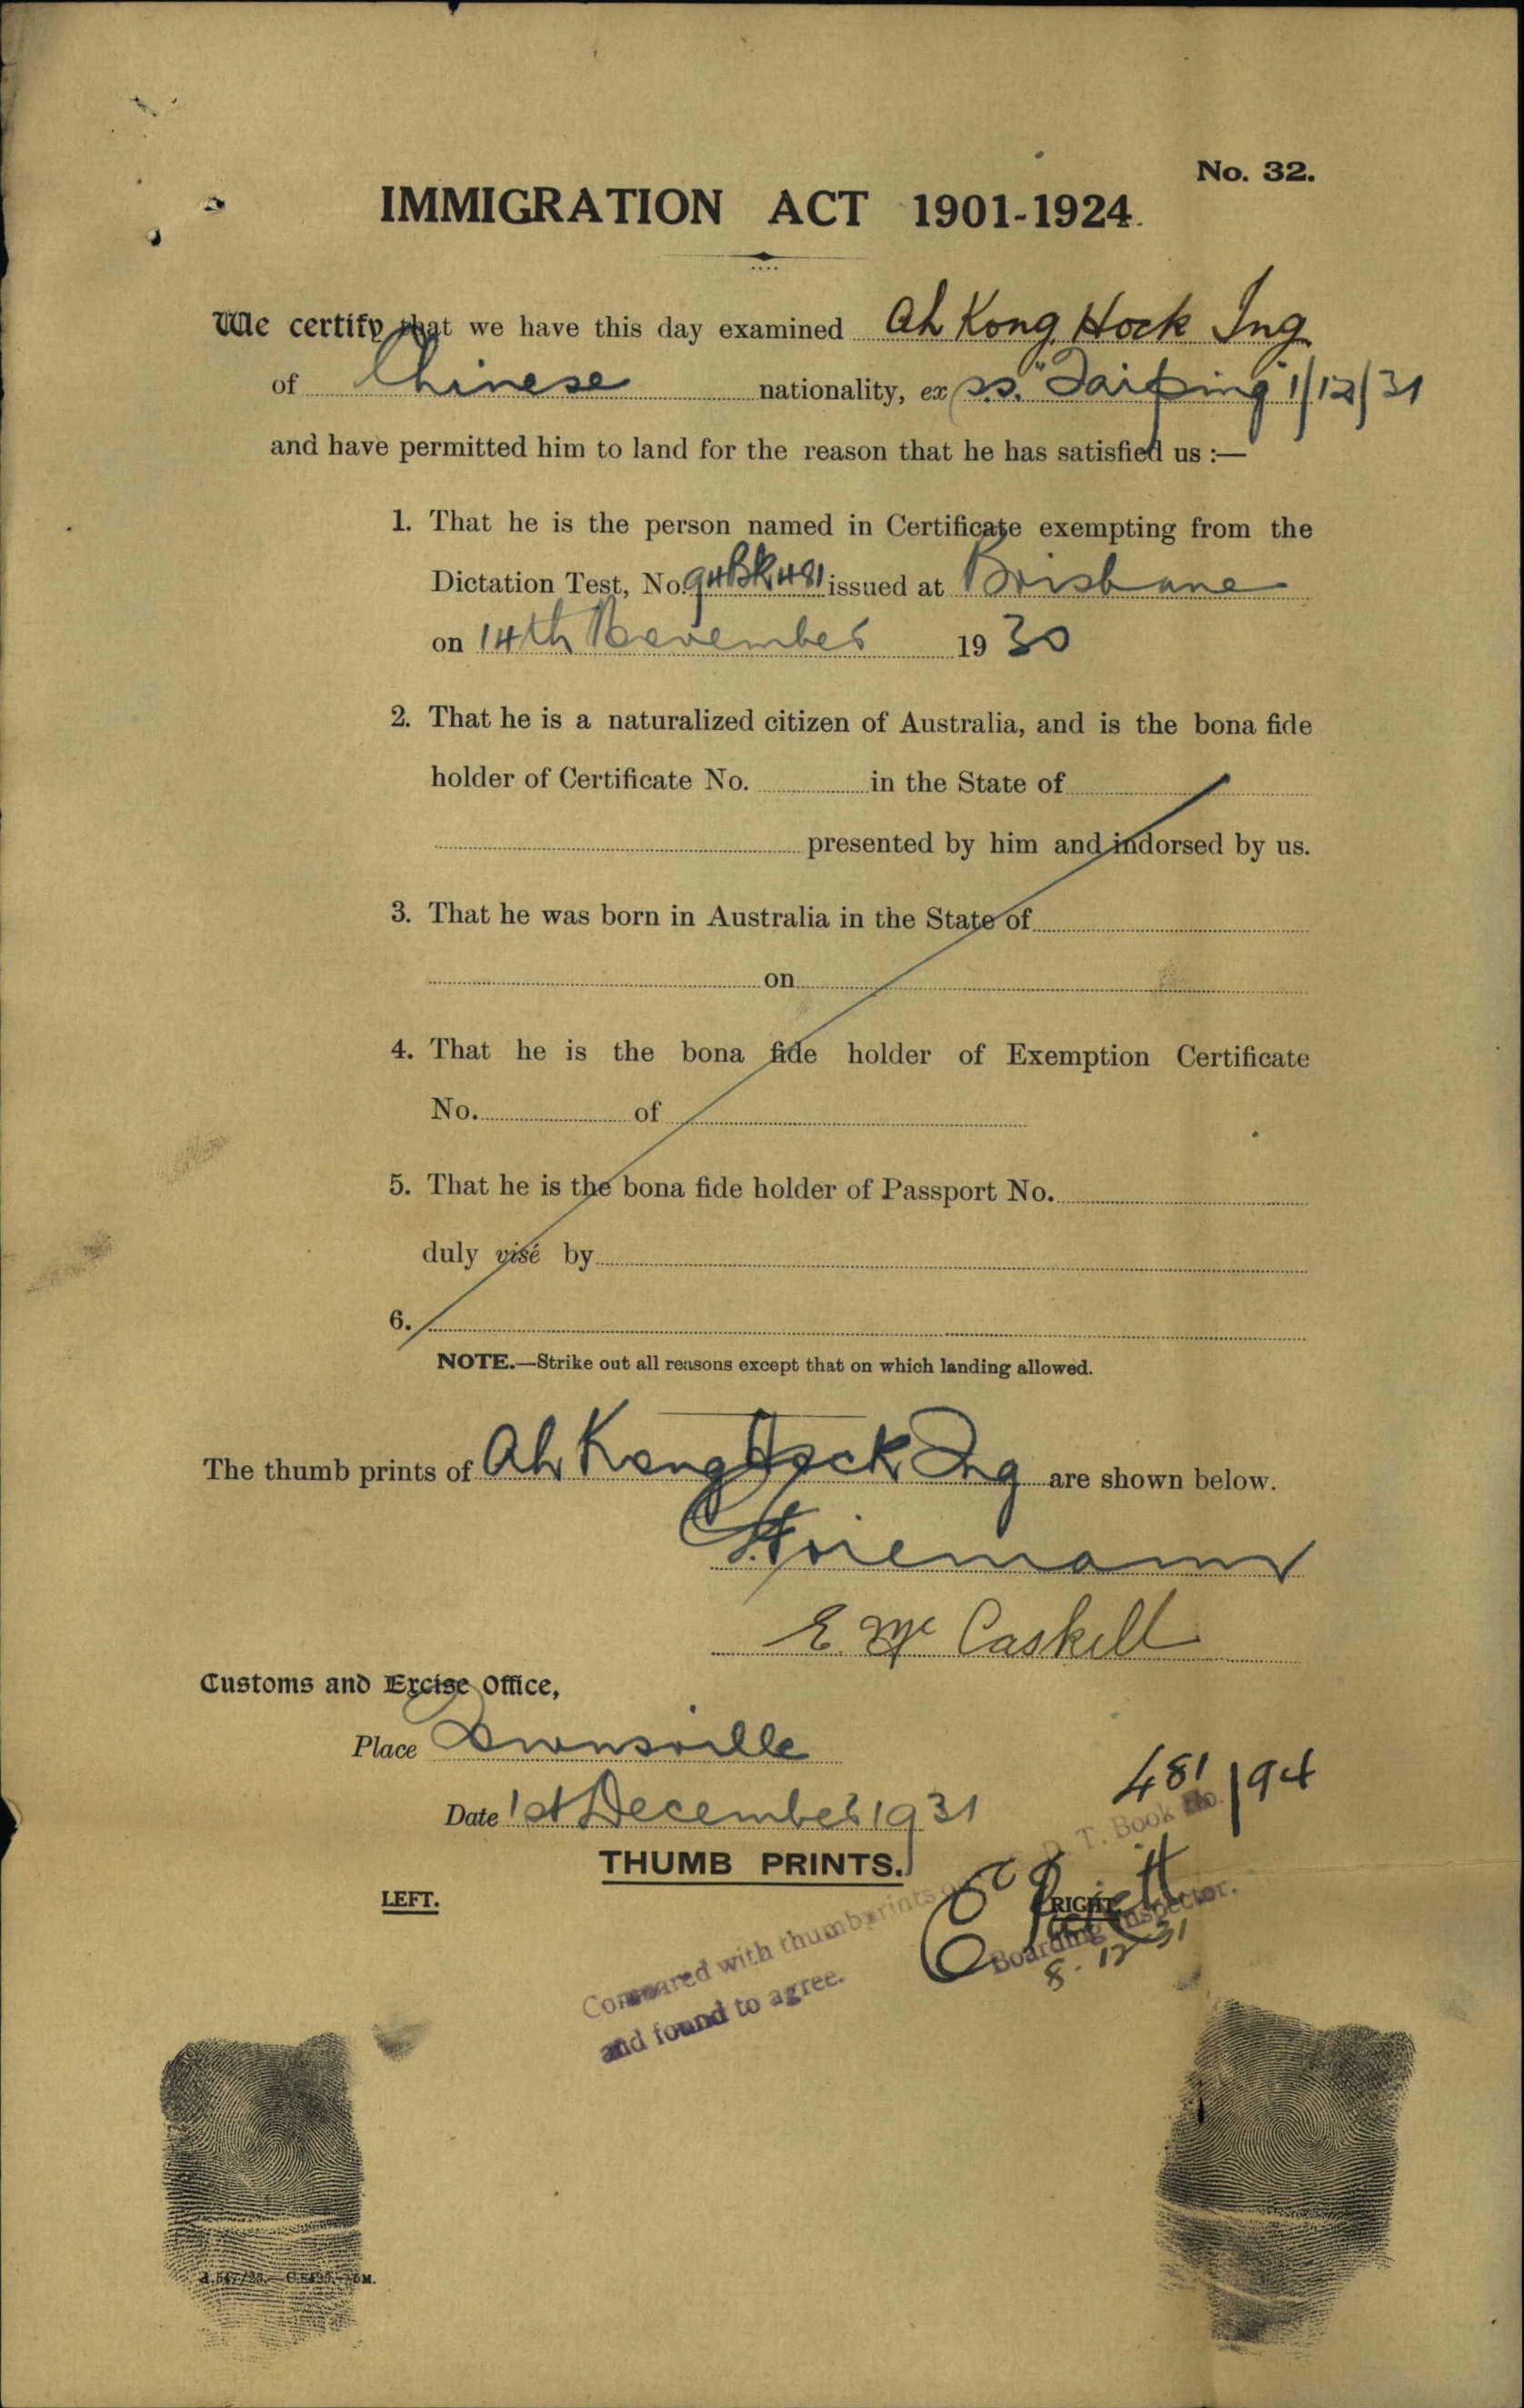 No. 32.
IMMIGRATION ACT 1901-1924.
We certify that we have this day examined Ah Kong Hock Ing
of Chinese nationality, ex s.s. "Taiping" 1/12/31
and have permitted him to land for the reason that he has satisfied us :—
1. That he is the person named in Certificate exempting from the
Dictation Test, No. 94BK481 issued at Brisbane
on 14th November 1930
2. That he is a naturalized citizen of Australia, and is the bona fide
holder of Certificate No. in the State of
presented by him and indorsed by us.
3. That he was born in Australia in the State of
on
4. That he is the bona fide holder of Exemption Certificate
No. of
5. That he is the bona fide holder of Passport No.
duly visé by
6.
NOTE.—Strike out all reasons except that on which landing allowed.
The thumb prints of Ah Kong Hock Ing are shown below.
E. McCaskill
Customs and Excise Office,
Place Townsville
481/94
Date 1st December 1931
D. T. Book No.
THUMB PRINTS.
LEFT.
RIGHT.
Compared with thumb prints on
Boarding Inspector.
and found to agree.
8.12.31